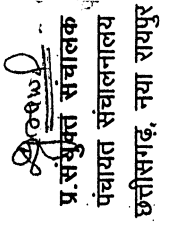 प्र.संयुक्त संचालक
पंचायत संचालनालय
छत्तीसगढ़, नया रायपुर